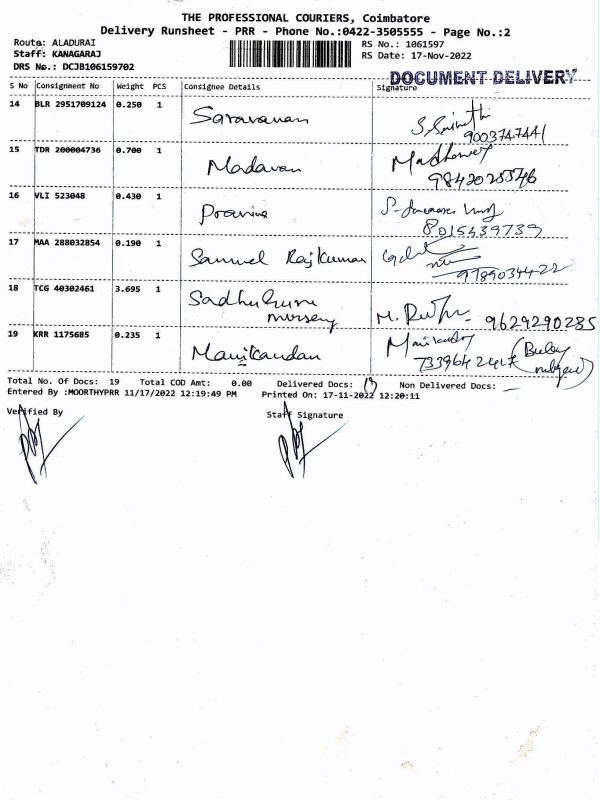 THE PROFESSIONAL COURIERS, Coimbatore
Delivery Runsheet - PRR - Phone No.:0422-3505555 - Page No.:2
Route: ALADURAI
Staff: KANAGARAJ
DRS No.: DCJB106159702
RS No.: 1061597
RS Date: 17-Nov-2022
DOCUMENT DELIVERY
S No Consignment No Weight PCS Consignee Details Signature
14 BLR 2951709124 0.250 1 Saravanan
9003747441
15 TDR 200004736 0.700 1 Madavan
9842028546
16 VLI 523048 0.430 1 Pravina
8015439739
17 MAA 288032854 0.190 1 Samuel Rajkumar
9789034422
18 TCG 40302461 3.695 1 Sadhukuru
nursery
9629290285
19 KRR 1175685 0.235 1 Manikandan
Total No. Of Docs: 19 Total COD Amt: 0.00 Delivered Docs: Non Delivered Docs: —
Entered By :MOORTHYPRR 11/17/2022 12:19:49 PM Printed On: 17-11-2022 12:20:11
Verified By Staff Signature